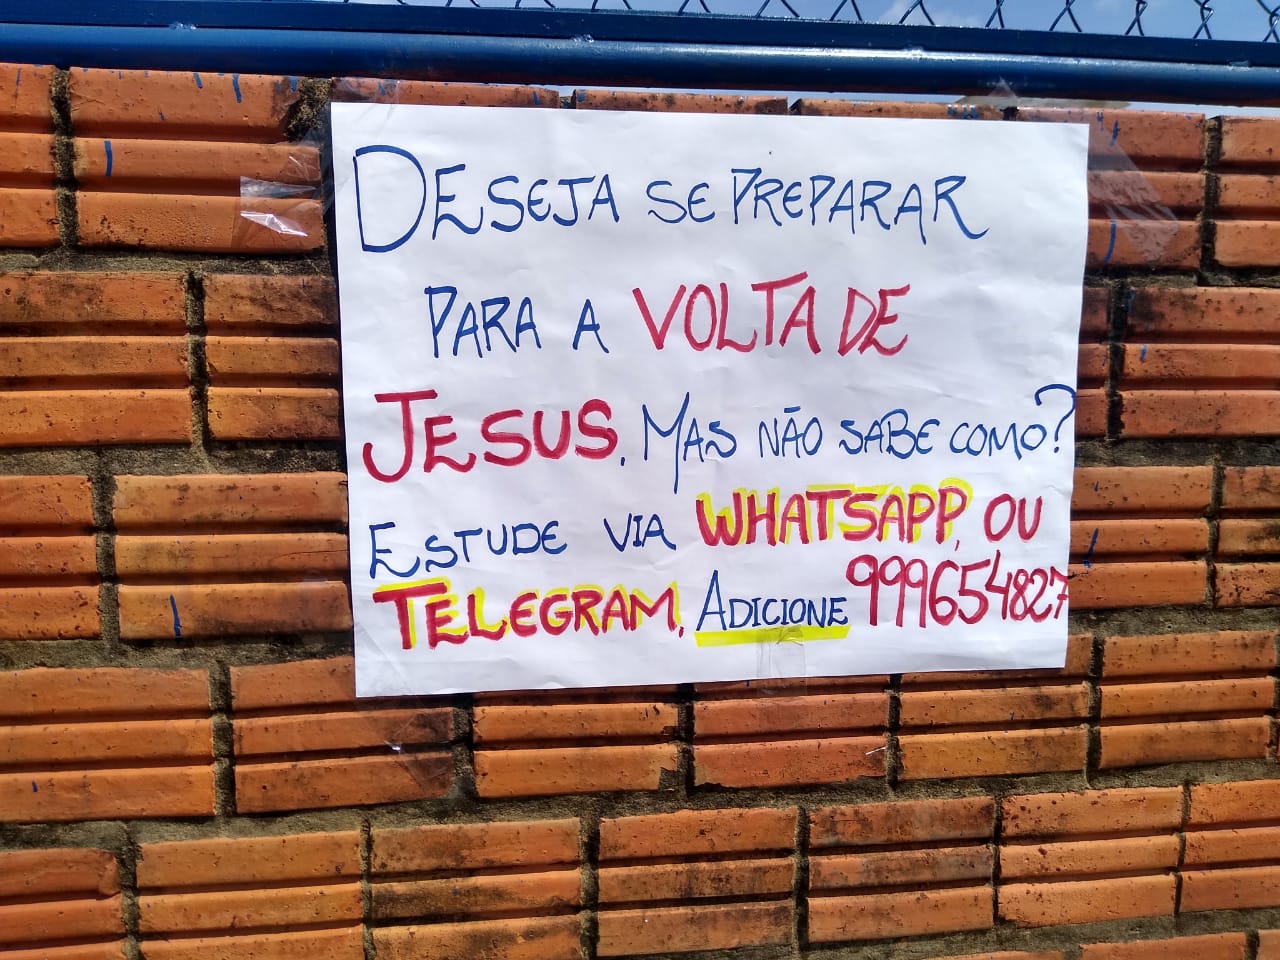 DESEJA SE PREPARAR
PARA A VOLTA DE
JESUS, MAS NÃO SABE COMO?
ESTUDE VIA WHATSAPP, OU
TELEGRAM, ADICIONE 999654827